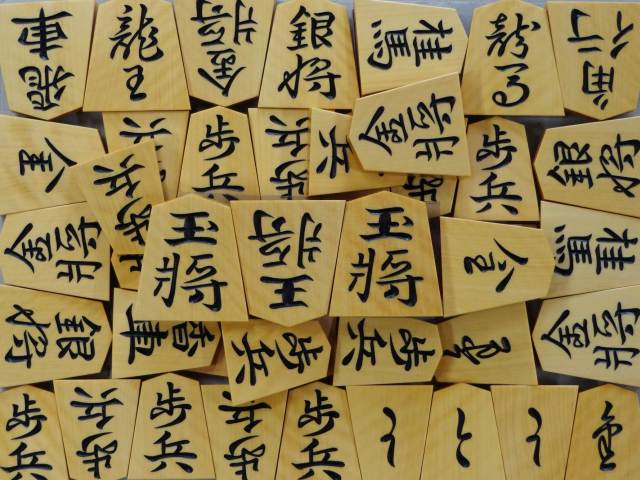 飛車
龍王
金将
銀将
桂馬
龍馬
角行
歩兵
歩兵
歩兵
兵
金将
歩兵
銀将
金将
歩兵
王將
王将
王將
桂馬
銀将
香車
歩兵
歩兵
金将
歩兵
歩兵
歩兵
歩兵
歩兵
と
と
と